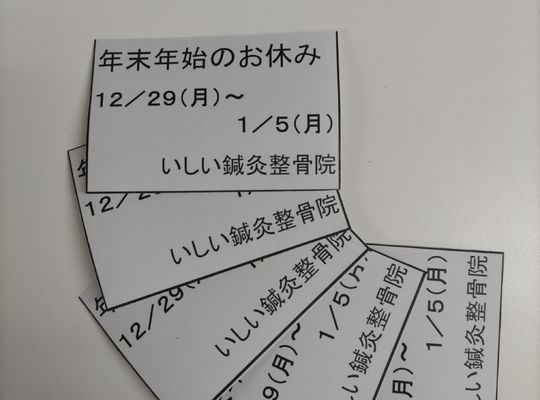 年末年始のお休み
12／29(月)～
1／5(月)
いしい鍼灸整骨院
12／2
いしい鍼灸整骨院
12／29(
いしい鍼灸整骨院
9(月)～
1／5(月)
いしい鍼灸整骨院
(月)～
1／5(月)
いしい鍼灸整骨院